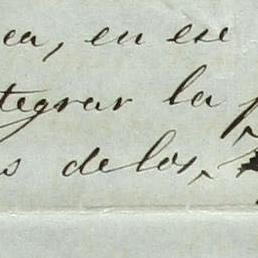 ea, en ese
tegrar la p
s de los,